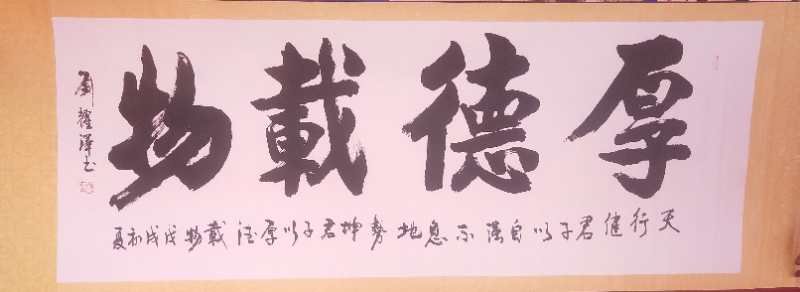 厚德載物
天行健君子以自强不息地势坤君子以厚德載物戊戌初夏
刘耀泽书